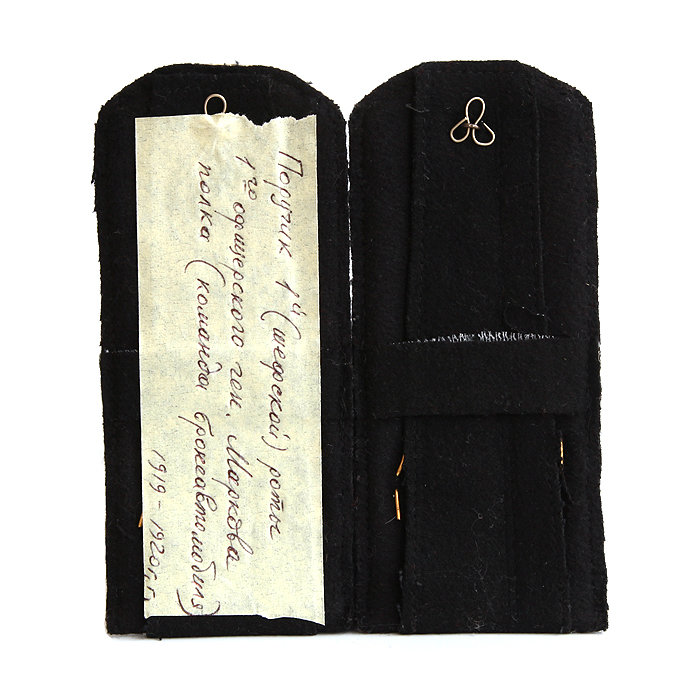 Поручик 1й (шефской) роты
1го офицерского ген. Маркова
полка (команда бронеавтомобиля)
1919 - 1920 г.г.